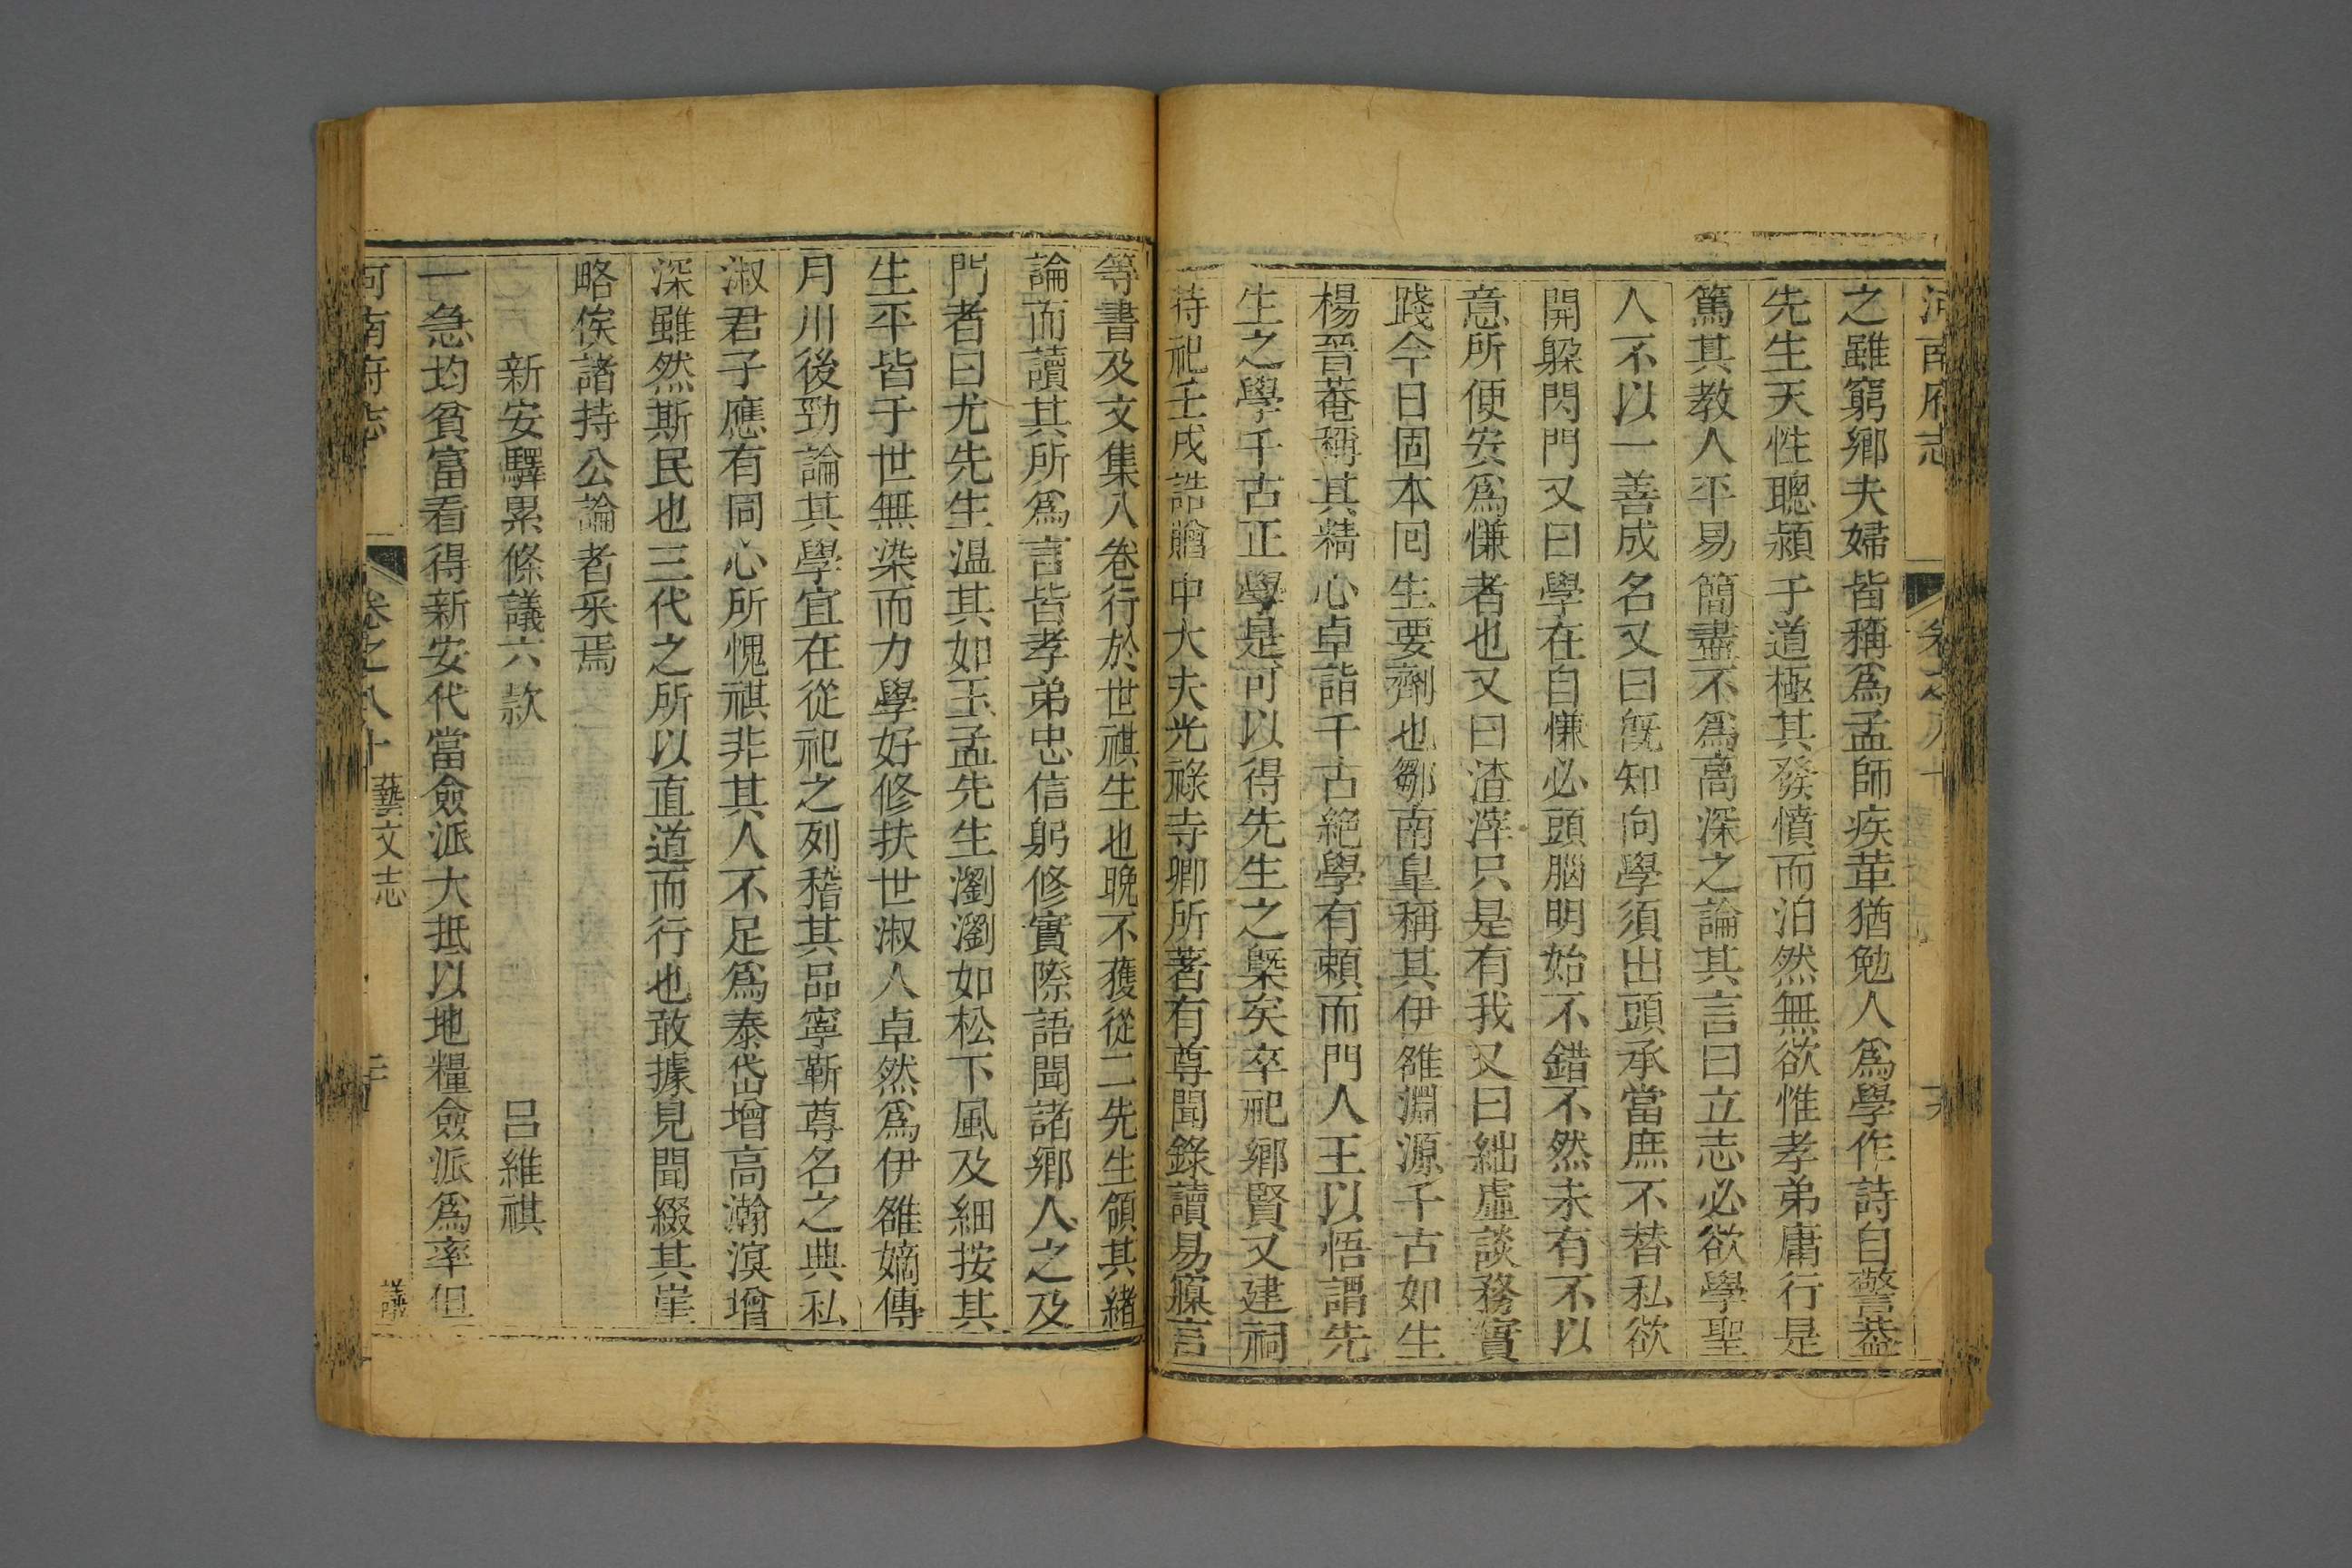 河南府志 卷之八十
之雖窮鄉夫婦皆稱爲孟師疾革猶勉人爲學作詩自警葢
先生天性聰頴于道極其發憤而泊然無欲惟孝弟庸行是
篤其教人平易簡盡不爲高深之論其言曰立志必欲學聖
人不以一善成名又曰旣知向學須出頭承當庶不替私欲
開躱閃門又曰學在自慊必頭腦明始不錯不然未有不以
意所便安爲慊者也又曰渣滓只是有我又曰絀虛談務實
踐今日固本回生要劑也鄒南臯稱其伊雒淵源千古如生
楊晉菴稱其精心卓詣千古絕學有賴而門人王以悟謂先
生之學千古正學是可以得先生之槩矣卒祀鄉賢又建祠
待祀壬戌誥贈中大夫光祿寺卿所著有尊聞錄讀易寱言
等書及文集八卷行於世祺生也晚不獲從二先生領其緒
論而讀其所爲言皆孝弟忠信躬修實際語聞諸鄉人之及
門者曰尤先生溫其如玉孟先生瀏瀏如松下風及細按其
生平皆于世無染而力學好修扶世淑人卓然爲伊雒嫡傳
月川後勁論其學宜在從祀之列稽其品寧靳尊名之典私
淑君子應有同心所愧祺非其人不足爲泰岱增高瀚溟增
深雖然斯民也三代之所以直道而行也敢據見聞綴其崖
略俟諸持公論者采焉
新安驛累條議六款 呂維祺
一急均貧富看得新安代當僉派大抵以地糧僉派爲率但
河南府志 卷之八十 藝文志 議